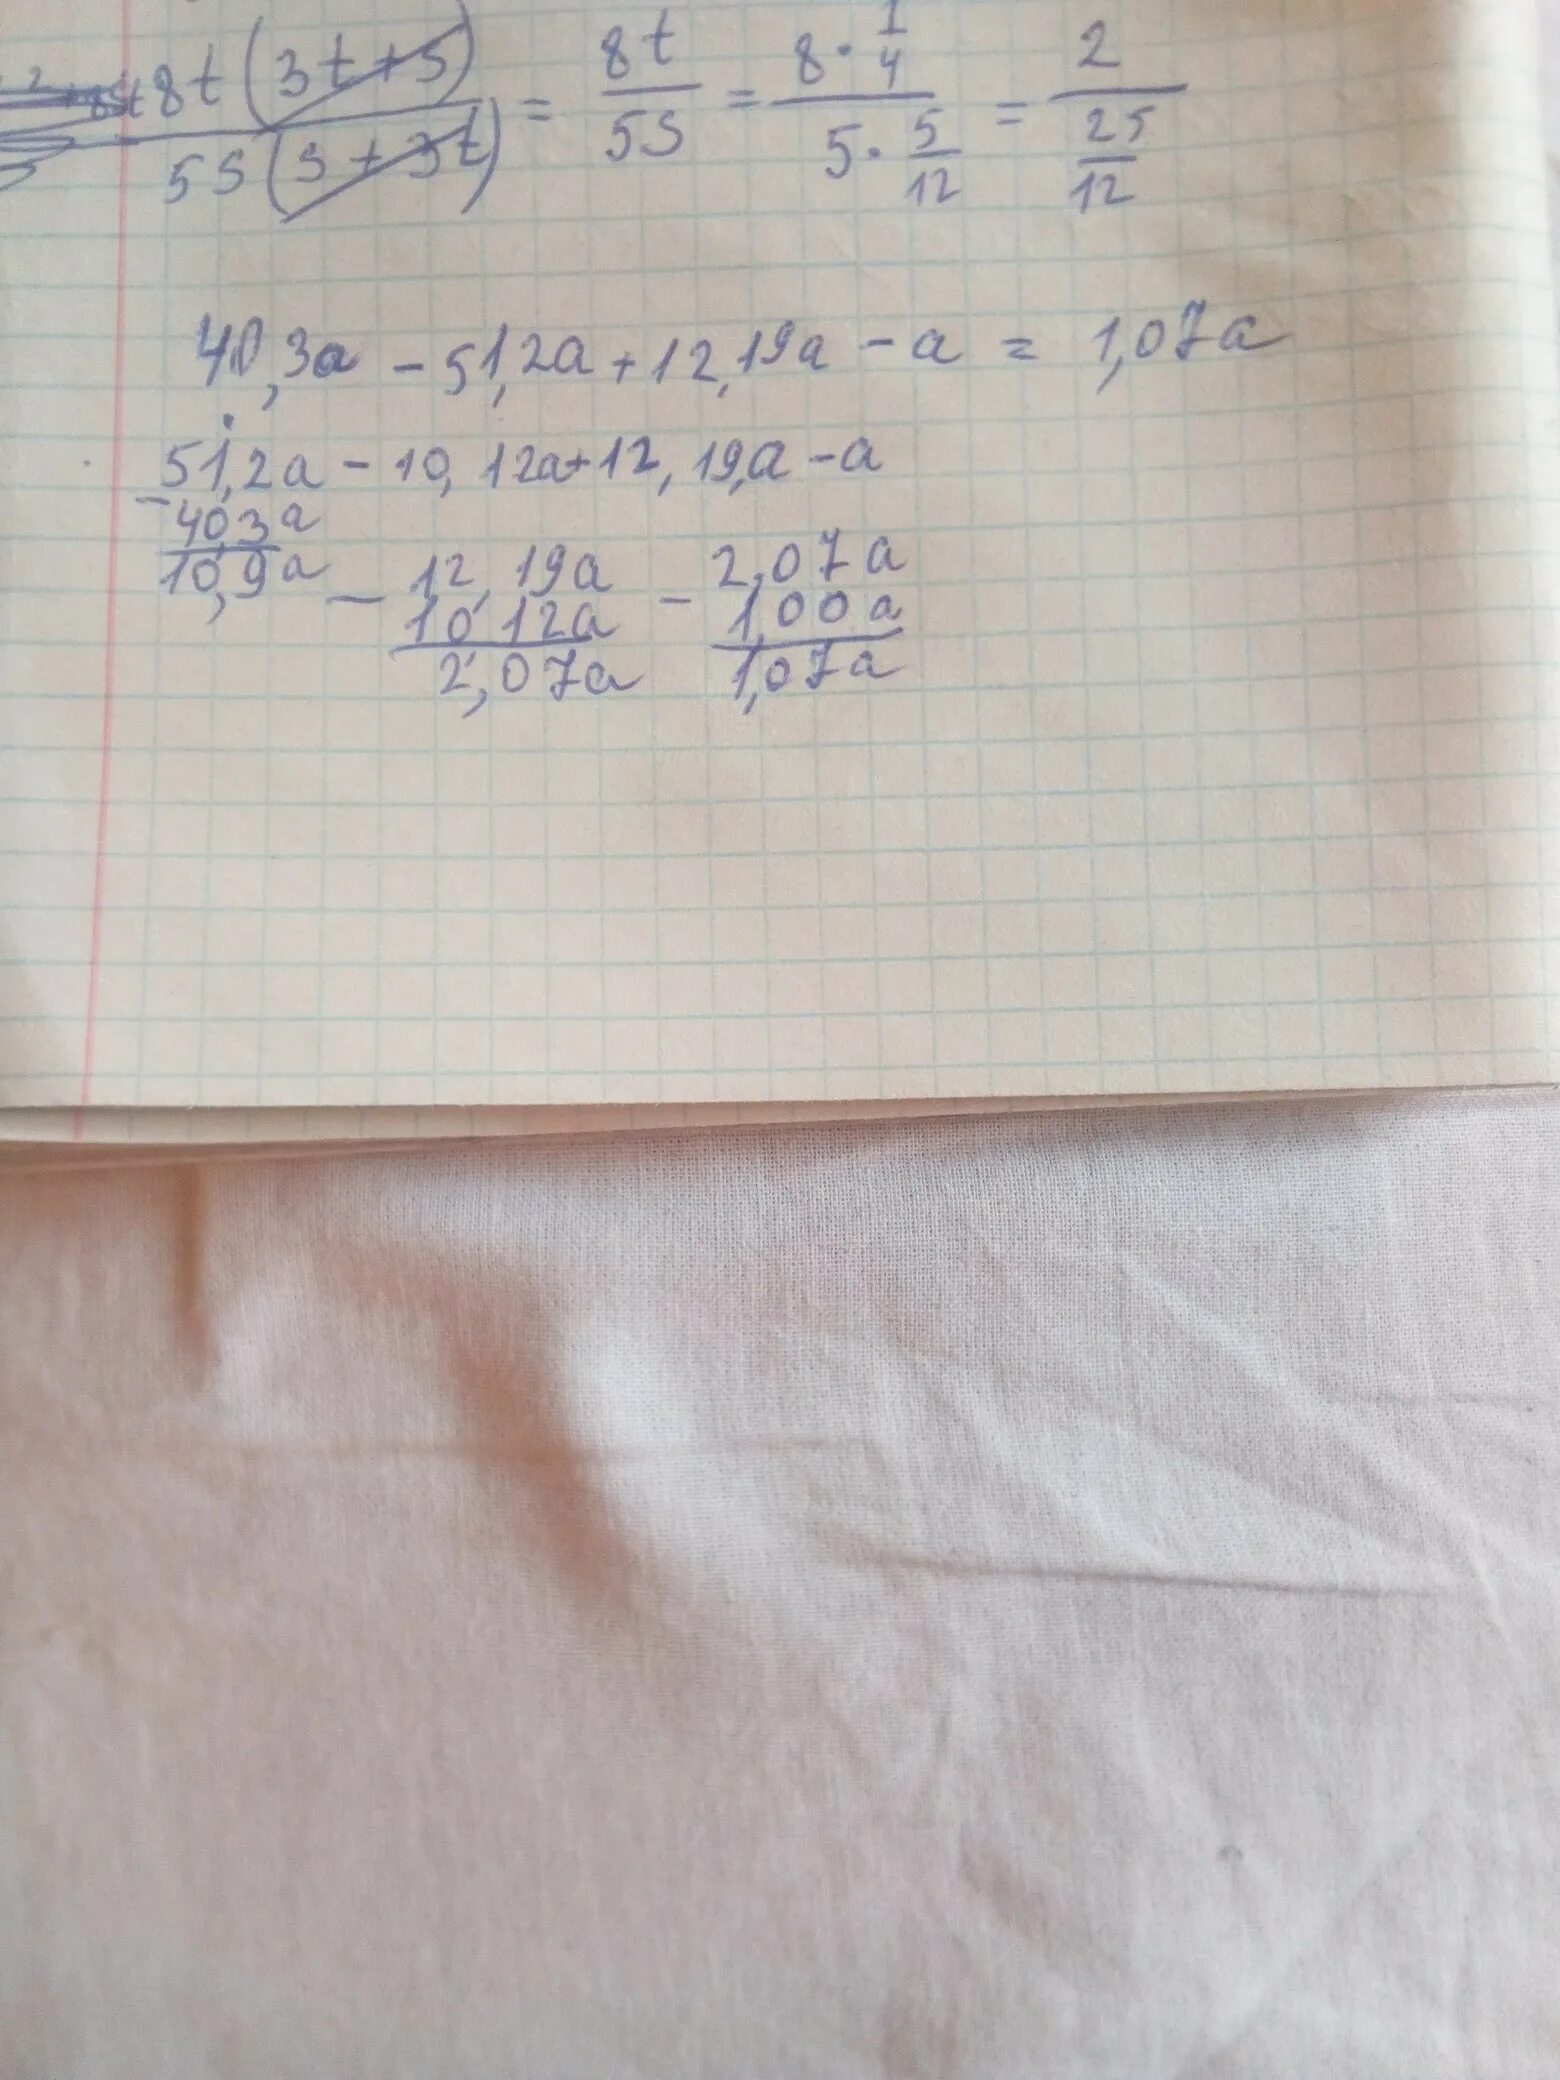 8t(3t+s) / 5s(s+3t) = 8t / 5s = 8·1/4 / 5·5/12 = 2 / 25/12
40,3a - 51,2a + 12,19a - a = 1,07a
51,2a - 10,12a + 12,19,a - a
- 40,3a
10,9a
- 12,19a - 2,07a
10,12a 1,00a
2,07a 1,07a